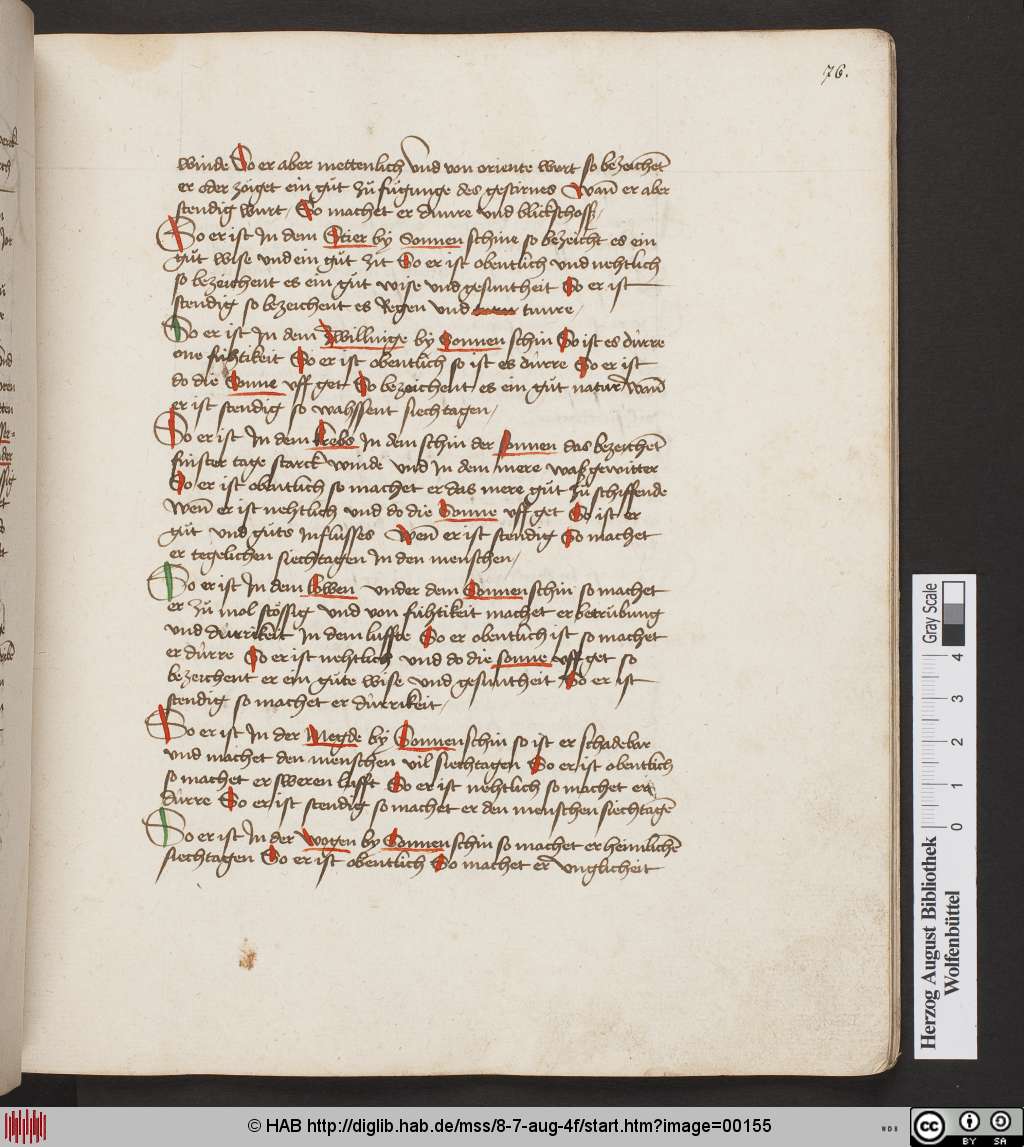 76.
winde So er aber mettenlich vnd von oriente wert so bezeichet
er oder zöiget ein gůt zů fůgunge des gestirnes Wan̄ er aber
stendig wurt, So machet er dunre vnd blickschosß,
So er ist In dem Stier by Sonnen schine so bezeicht es ein
gůt wise vnd ein gůt zit So er ist obentlich vnd nehtlich
so bezeichent es ein gůt wise vnd gesuntheit So er ist
stendig so bezeichent es Regen vnd tunre,
So er ist In dem Zwillinge by Sonnen schin So ist es dúrre
one fúhtikeit So er ist obentlich so ist es dúrre So er ist
do die Sonne vff get So bezeichent es ein gůt natur Wan̄
er ist stendig so wahssent siechtagen,
So er ist In dem krebs In dem schin der sonnen das bezeichet
finster tage starck winde vnd In dem mere waßgewitter
So er ist obentlich so machet er das mere gůt zů schiffende
Wen̄ er ist nehtlich vnd do die Sonne vff get So ist er
gůt vnd gůts Influsses Wen̄ er ist stendig So machet
er tegelichen siechtagen In den menschen,
So er ist In dem lowen vnder dem Sonnen schin so machet
er zů mol stössig vnd von fúhtikeit machet er betrúbung
vnd dúrrikeit In dem luffte So er obentlich ist so machet
er dúrre So er ist nehtlich vnd do die sonne vff get so
bezeichent er ein gůte wise vnd gesuntheit So er ist
stendig so machet er dúrrikeit,
So er ist In der Megde by Sonnenschin so ist er schadebar
vnd machet den menschen vil siechtagen So er ist obentlich
so machet er sweren lufft So er ist nehtlich so machet er
dúrre So er ist stendig so machet er den menschen siechtagē
So er ist In der wogen by Sonnen schin so machet er heimlichē
siechtagen So er ist obentlich So machet er vnglicheit
Gray Scale
4
3
2
1
0
Herzog August Bibliothek
Wolfenbüttel
© HAB http://diglib.hab.de/mss/8-7-aug-4f/start.htm?image=00155
WDB
cc
BY SA